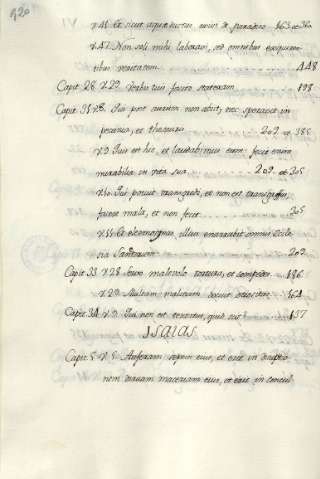 420
v.41. Et sicut aquæductus exivi de paradiso. 163. et 310
v.47. Non soli mihi laboravi, sed omnibus exquirentibus veritatem. 448
Capit. 28. v.29. Verbis tuis facito stateram 198
Capit. 31. v.8. Qui post aurum non abiit, nec speravit in
pecunia, et thesauris 209. et 385
v.9. Quis est hic, et laudabimus eum: fecit enim
mirabilia in vita sua 209. et 205
v.10. Qui potuit transgredi, et non est transgressus,
facere mala, et non fecit 205
v.11. Et eleemosynas illius enarrabit omnis Eccle
sia Sanctorum 209
Capit. 33. v.28. Servo malevolo tortura, et compedes 186
v.29. Multam malitiam docuit otiositas 164
Capit. 34. v.9. Qui non est tentatus, quid scit 137
ISAIAS
Capit. 5. v.5. Auferam sepem eius, et erit in direptio
nem: diruam maceriam eius, et erit in concul